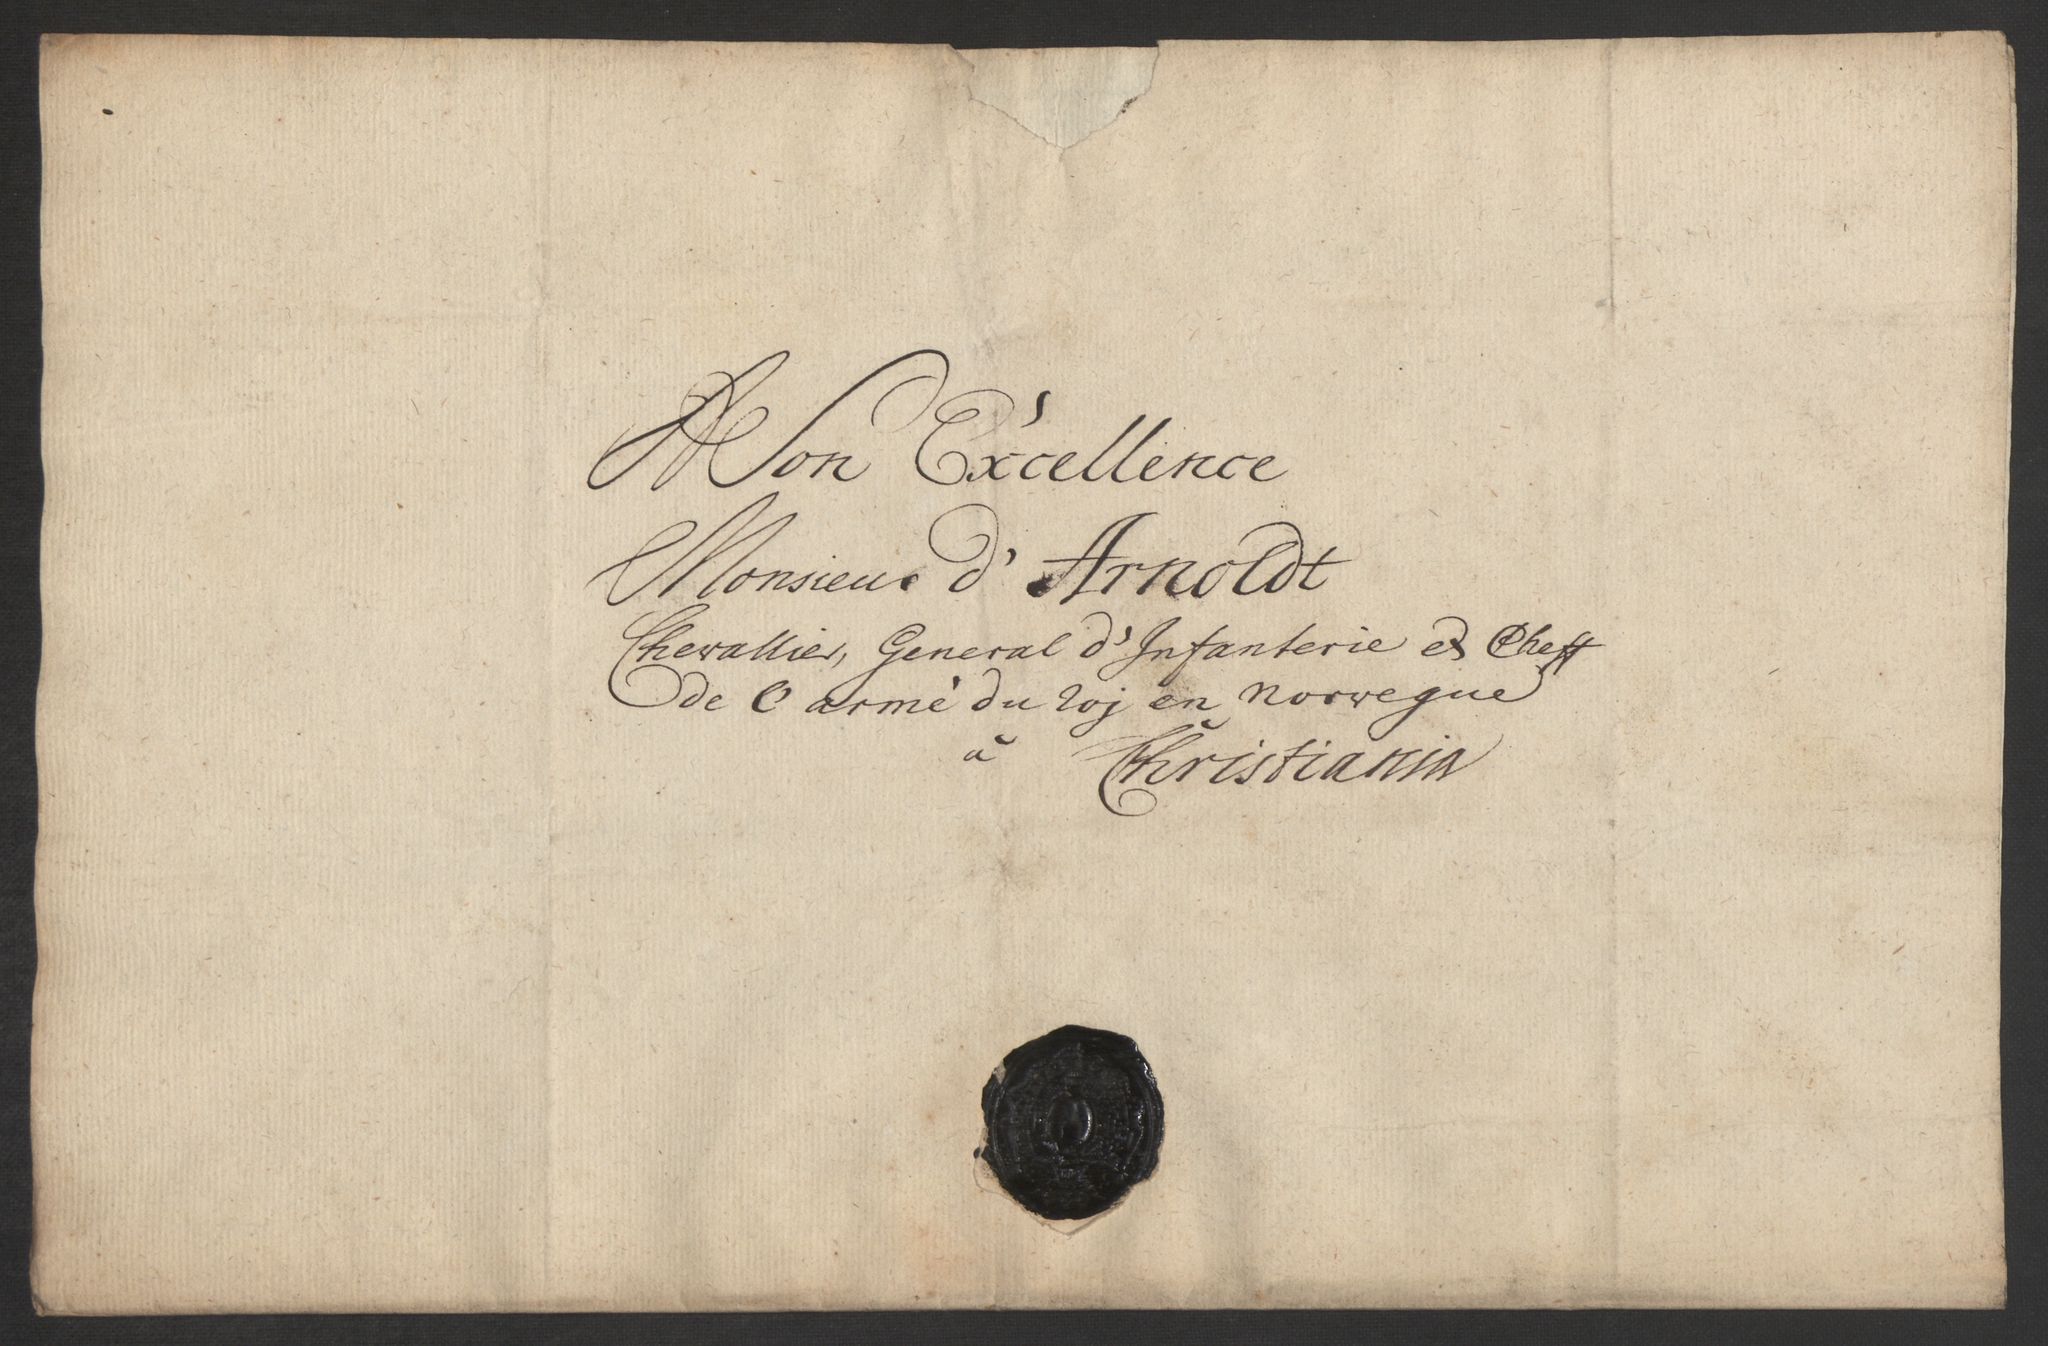 A Son Excellence
Monsieur d' Arnoldt
Chevallier, General d'Infanterie et Cheff
de l'armé du Roj en Norwegue
à Christiania